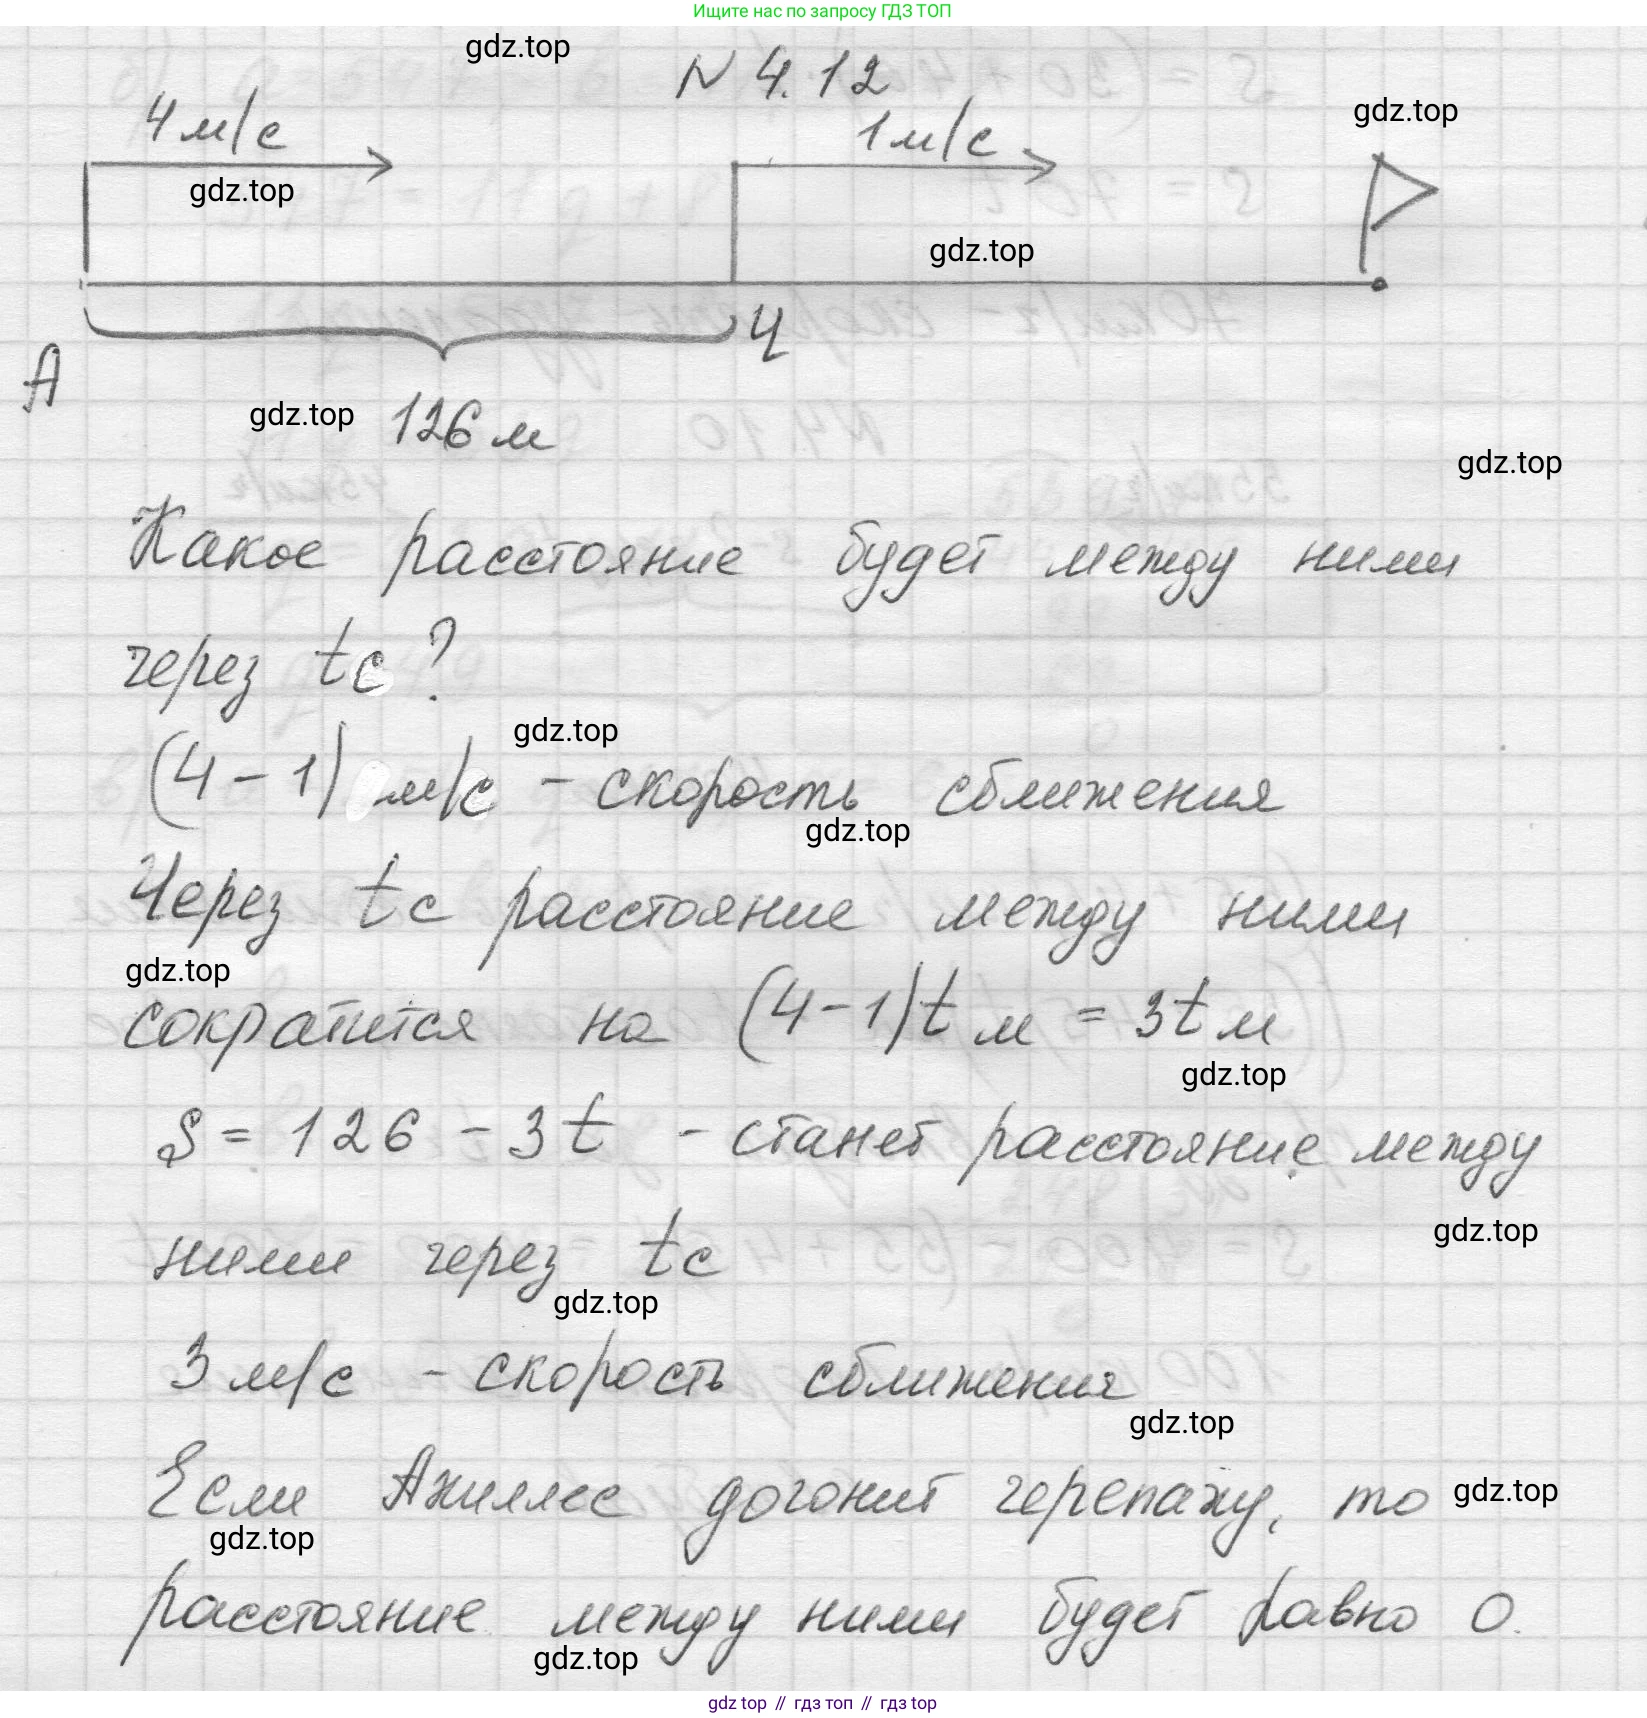 Ищите нас по запросу ГДЗ ТОП
gdz.top
N 4.12
gdz.top
4 м/с
1 м/с
gdz.top
gdz.top
А
Ч
gdz.top
126 м
gdz.top
Какое расстояние будет между ними
через t с?
gdz.top
(4 - 1) м/с - скорость сближения
gdz.top
Через t с расстояние между ними
gdz.top
сократится на (4 - 1)t м = 3t м
gdz.top
S = 126 - 3t - станет расстояние между
gdz.top
ними через t с
gdz.top
3 м/с - скорость сближения
gdz.top
Если Ахиллес догонит черепаху, то
gdz.top
gdz.top
расстояние между ними будет равно 0.
gdz.top
gdz top // гдз топ // гдз top